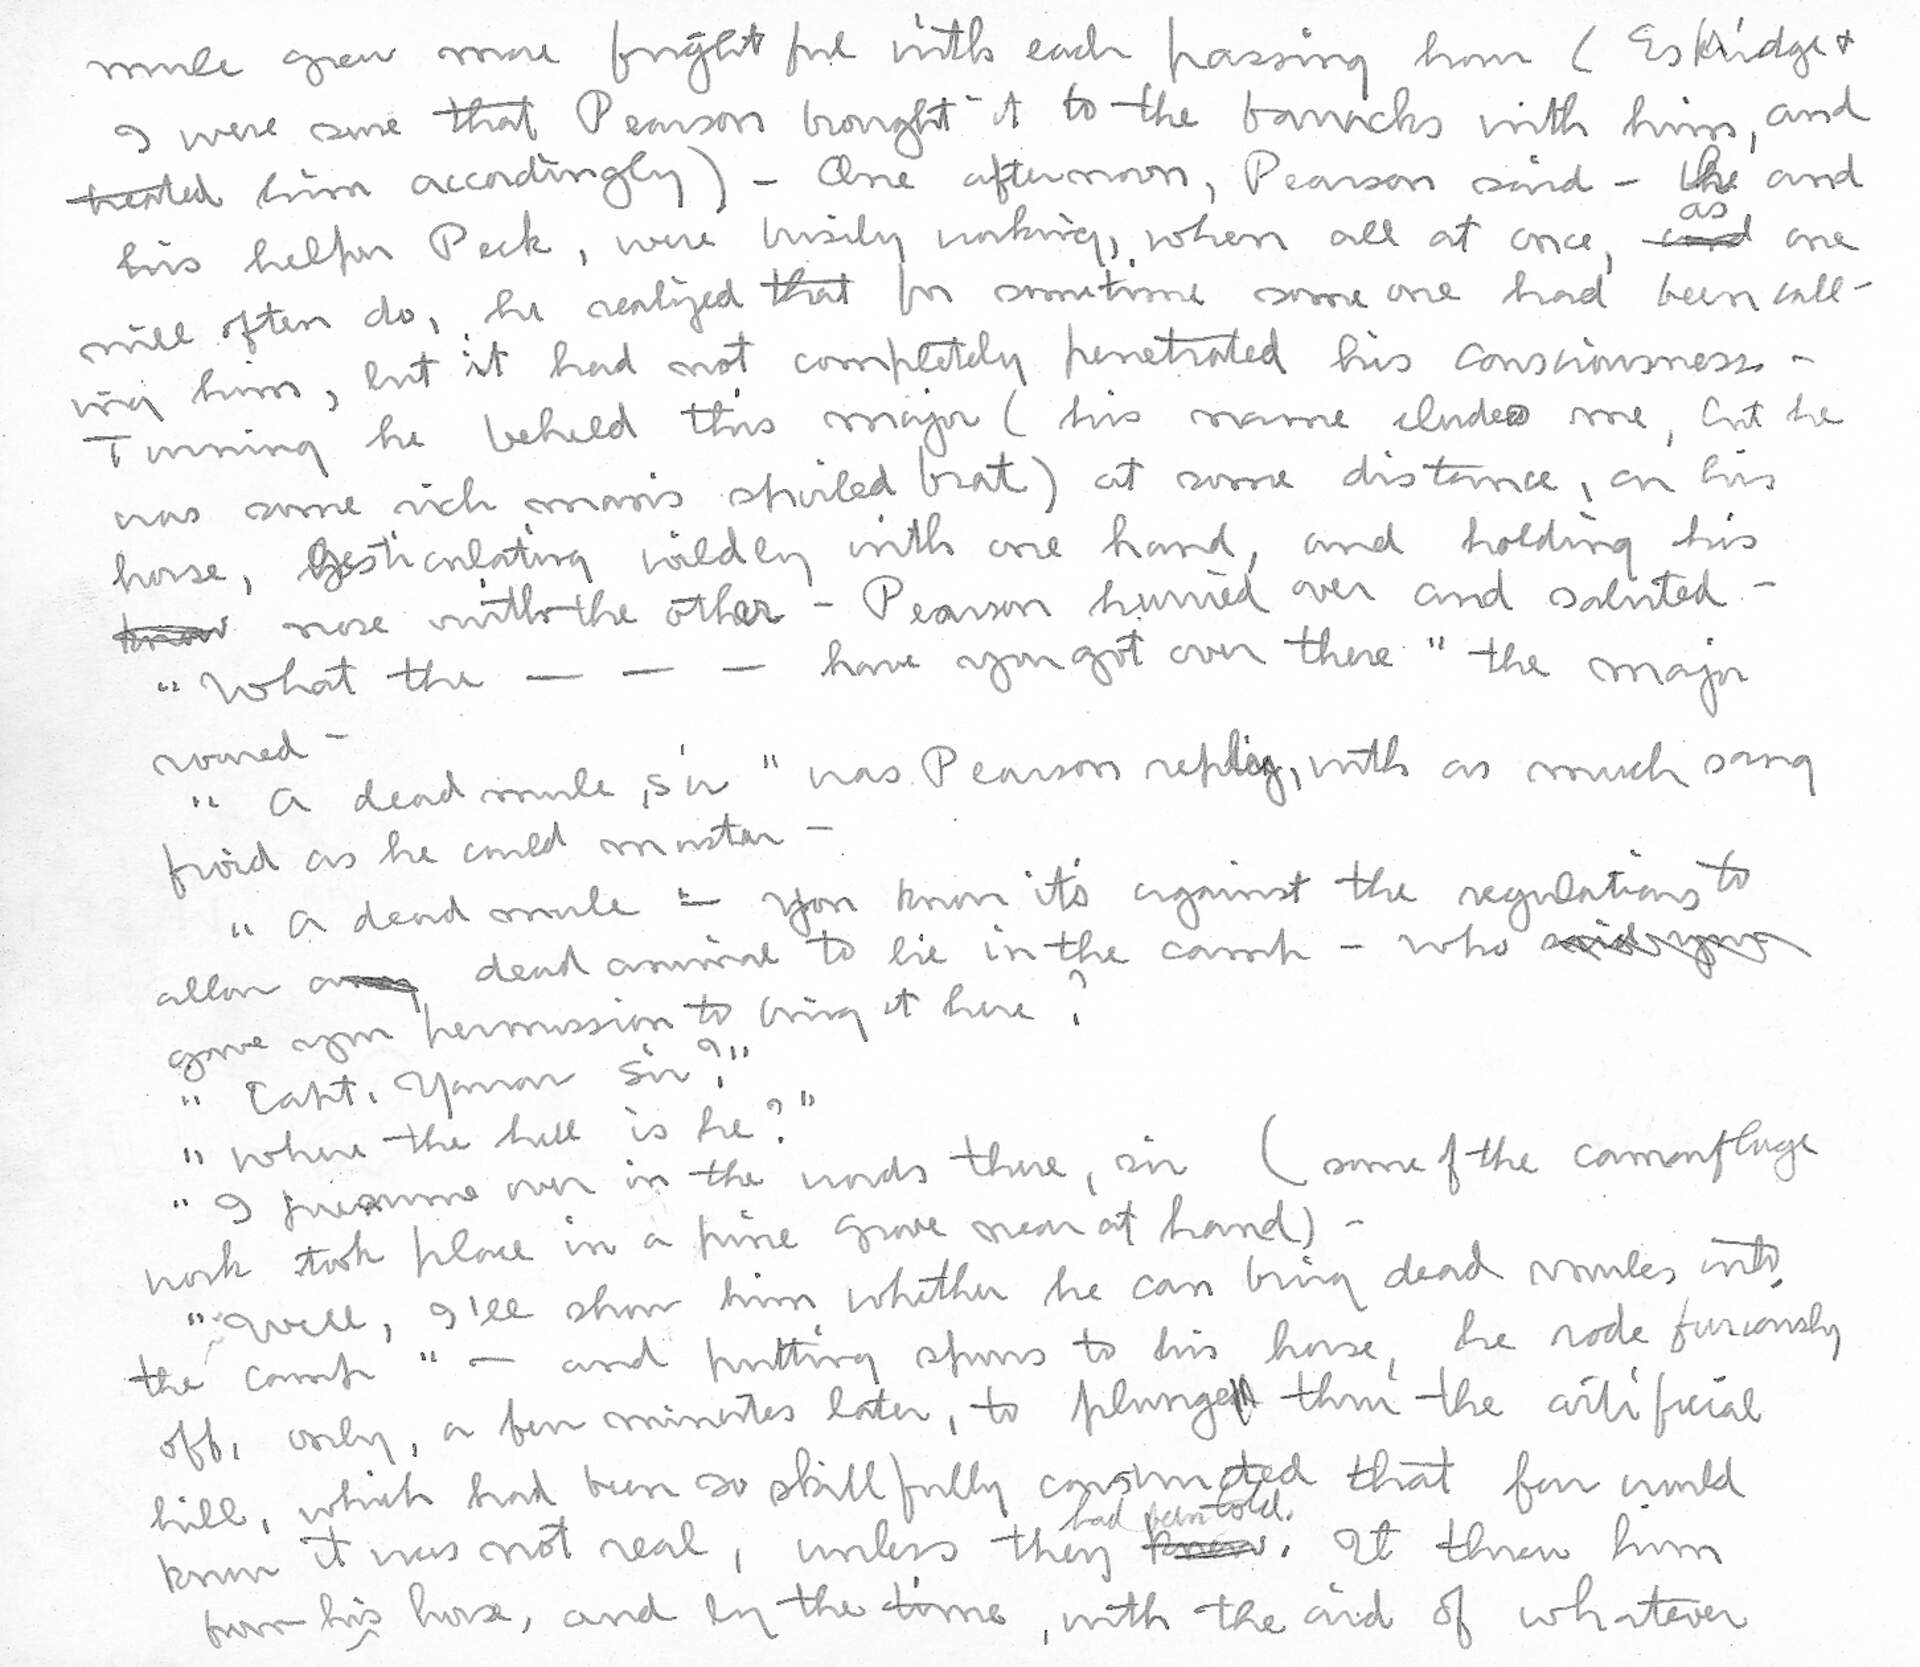 mule grew more frightful with each passing hour (Eskridge +
I were sure that Pearson brought it to the barracks with him, and
treated him accordingly) - One afternoon, Pearson said - he and
his helper Peck, were busily working, when all at once, as one
will often do, he realized that for sometime some one had been call-
ing him, but it had not completely penetrated his consciousness -
Turning he beheld this major (his name eludes me, but he
was some rich man's spoiled brat) at some distance, on his
horse, gesticulating wildly with one hand, and holding his
nose with the other - Pearson hurried over and saluted -
"What the — — — have you got over there" the major
roared -
"A dead mule, sir" was Pearson reply, with as much sang
froid as he could muster -
"A dead mule" - you know it's against the regulations to
allow any dead animal to lie in the camp - who said you
gave you permission to bring it here?
"Capt. Yarrow sir?"
"where the hell is he?"
"I presume over in the woods there, sir (some of the camouflage
work took place in a pine grove near at hand) -
"Well, I'll show him whether he can bring dead mules into
the camp" - and putting spurs to his horse, he rode furiously
off, only, a few minutes later, to plunge thru the artificial
hill, which had been so skillfully constructed that few would
know it was not real, unless they had been told. It threw him
from his horse, and by the time, with the aid of whatever